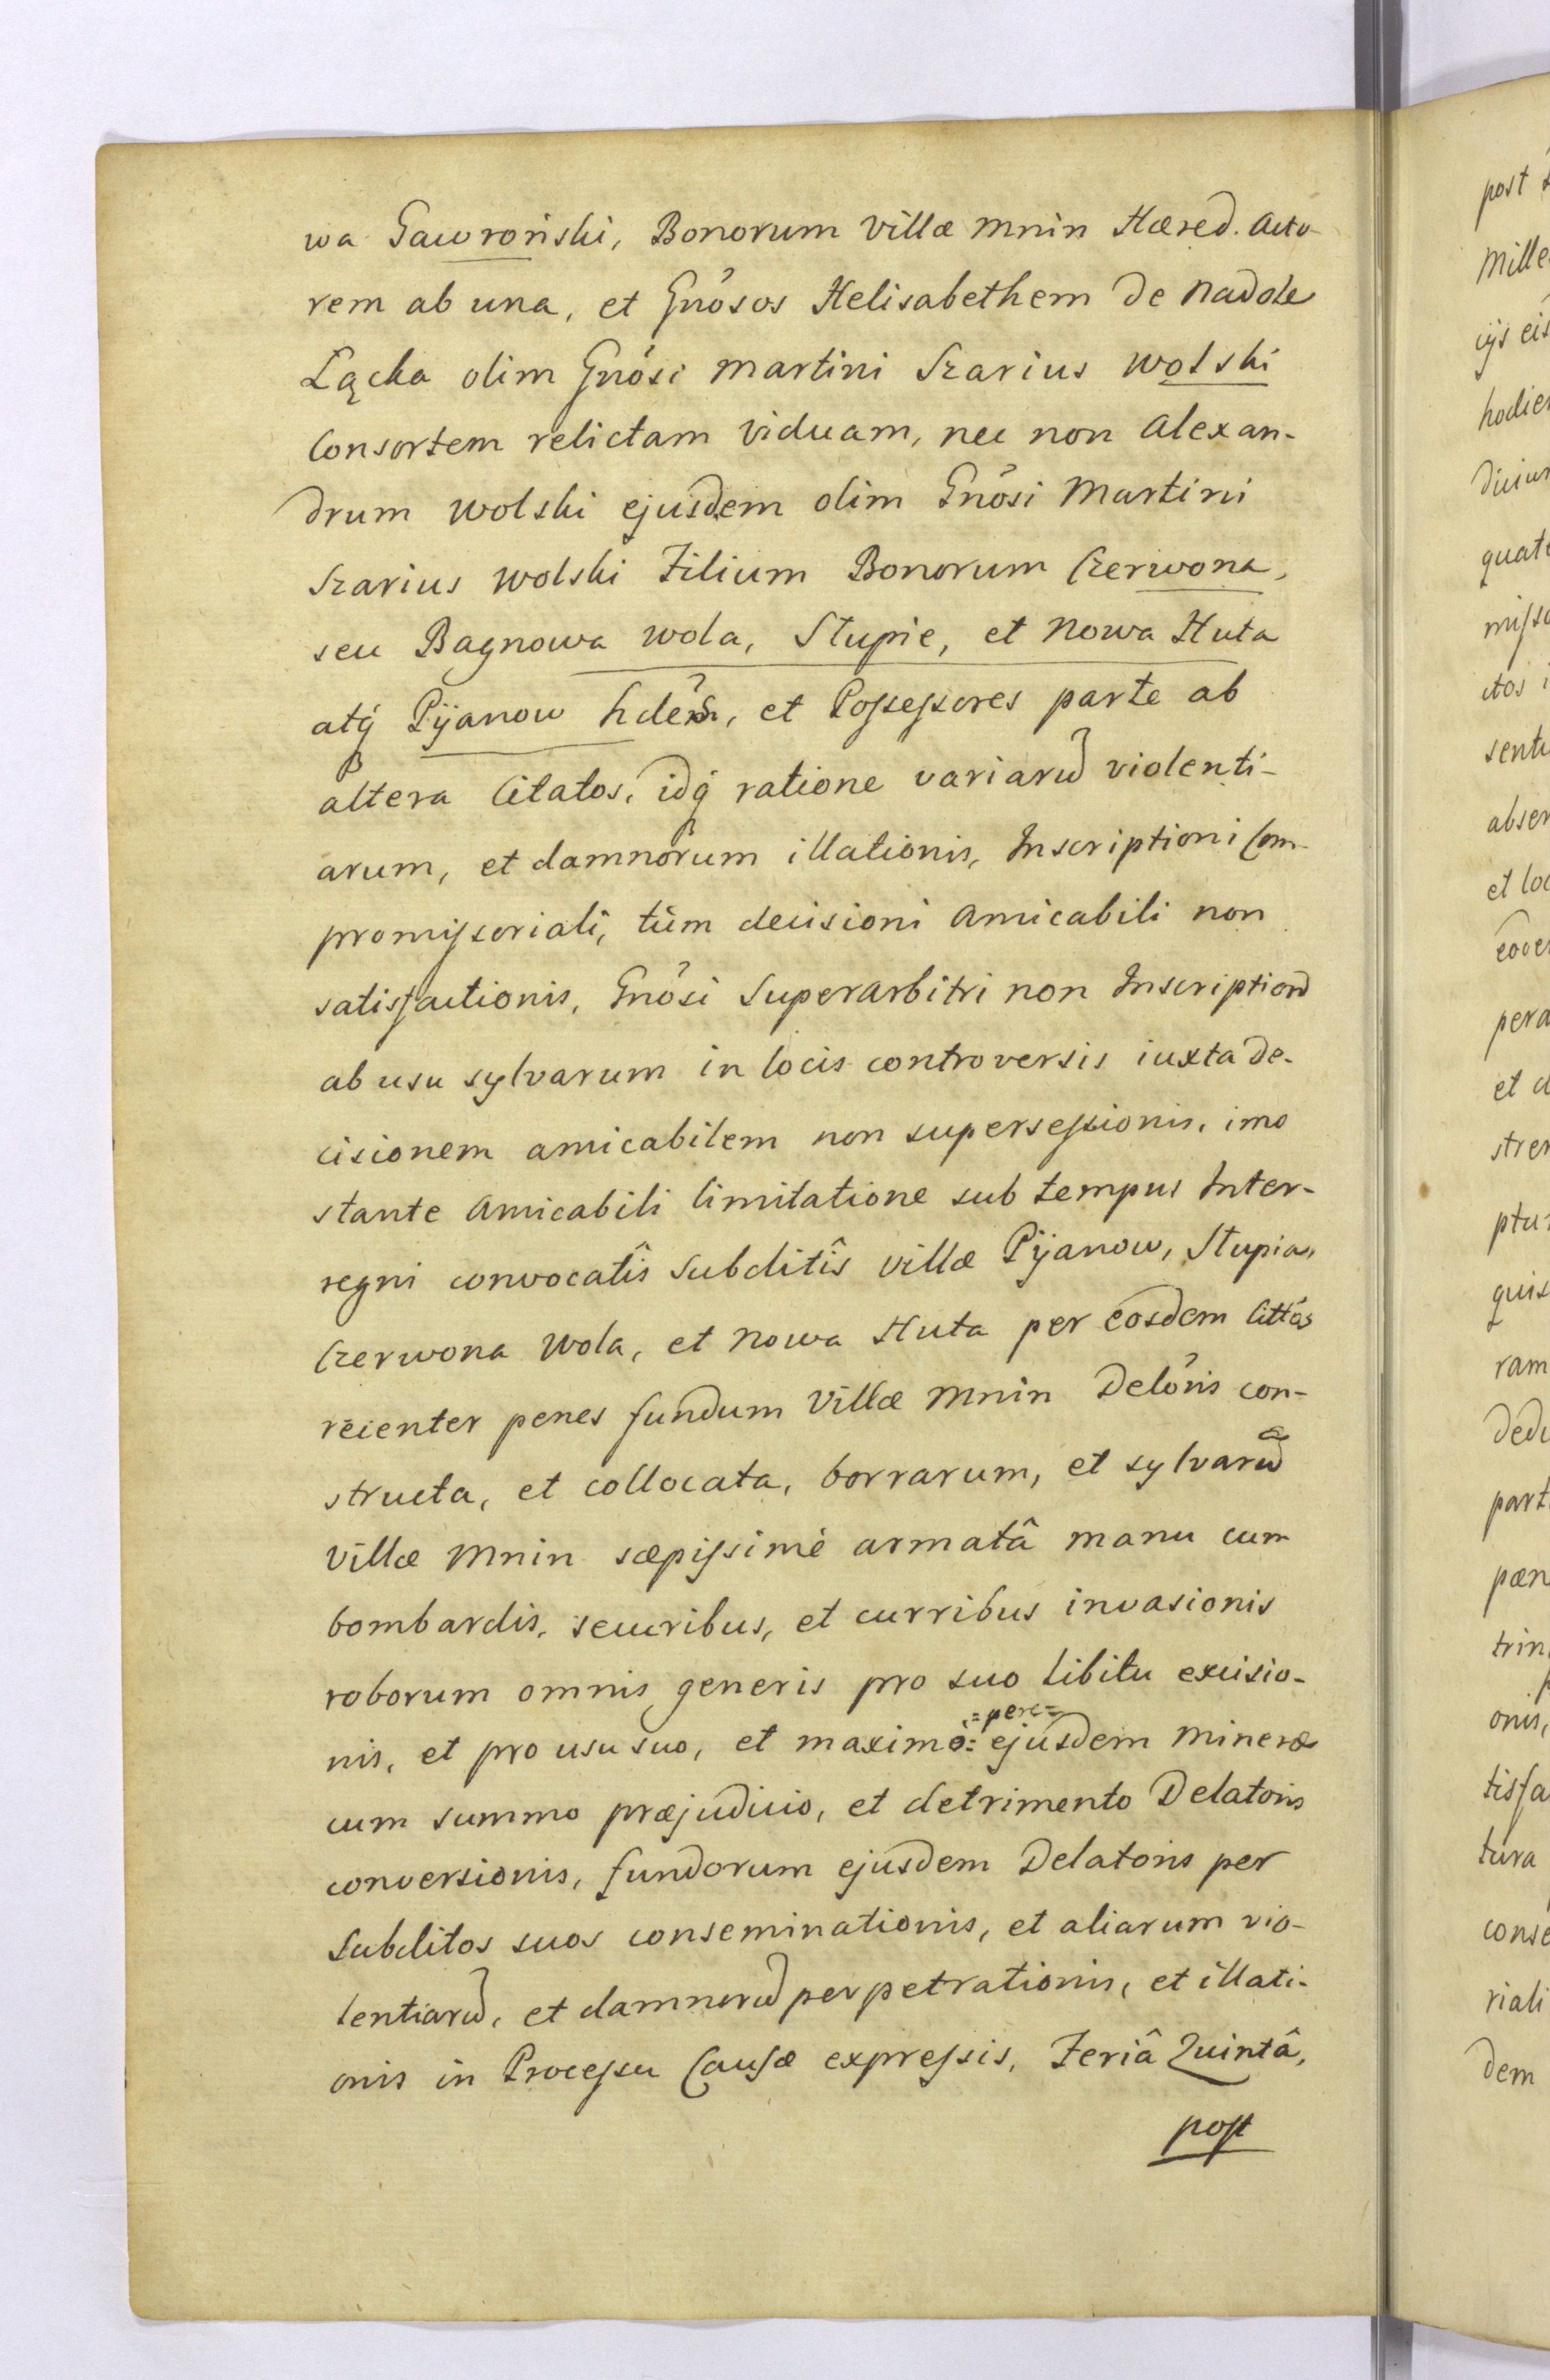 wa Gawroński, Bonorum Villæ Mnin Hæred. Acto-
rem ab una, et Gnōsos Helisabethem de Nadole
Łącka olim Gnōsi Martini Szarius Wolski
Consortem relictam Viduam, nec non Alexan-
drum Wolski ejusdem olim Gnōsi Martini
Szarius Wolski Filium Bonorum Czerwona,
seu Bagnowa Wola, Słupie, et Nowa Huta
atq́ Pijanow hdēs, et Poſseſsores parte ab
altera Citatos, idq́ ratione variarū violenti-
arum, et damnorum illationis, Inscriptioni Com-
promiſsoriali, tùm decisioni Amicabili non
satisfactionis, Gnōsi Superarbitri non Inscriptiord
ab usu sylvarum in locis controversis iuxta de-
cisionem amicabilem non superseſsionis, imo
stante Amicabili limitatione sub tempus Inter-
regni convocatîs Subditîs villæ Pijanow, Słupia,
Czerwona Wola, et Nowa Huta per eosdem Cittōs
recenter penes fundum Villæ Mnin Delōris con-
structa, et collocata, borrarum, et sylvarū
Villæ Mnin sæpiſsimè armatâ manu cum
bombardis, securibus, et curribus invasionis
roborum omnis generis pro suo libitu excisio-
nis, et pro usu suo, et maximo: =pere= ejusdem Mineræ
cum summo præjudicio, et detrimento Delatoris
conversionis, fundorum ejusdem Delatoris per
Subditos suos conseminationis, et aliarum vio-
lentiarū, et damnorū perpetrationis, et illati-
onis in Proceſsu Cauſæ expreſsis, Feriâ Quintâ,
poſt